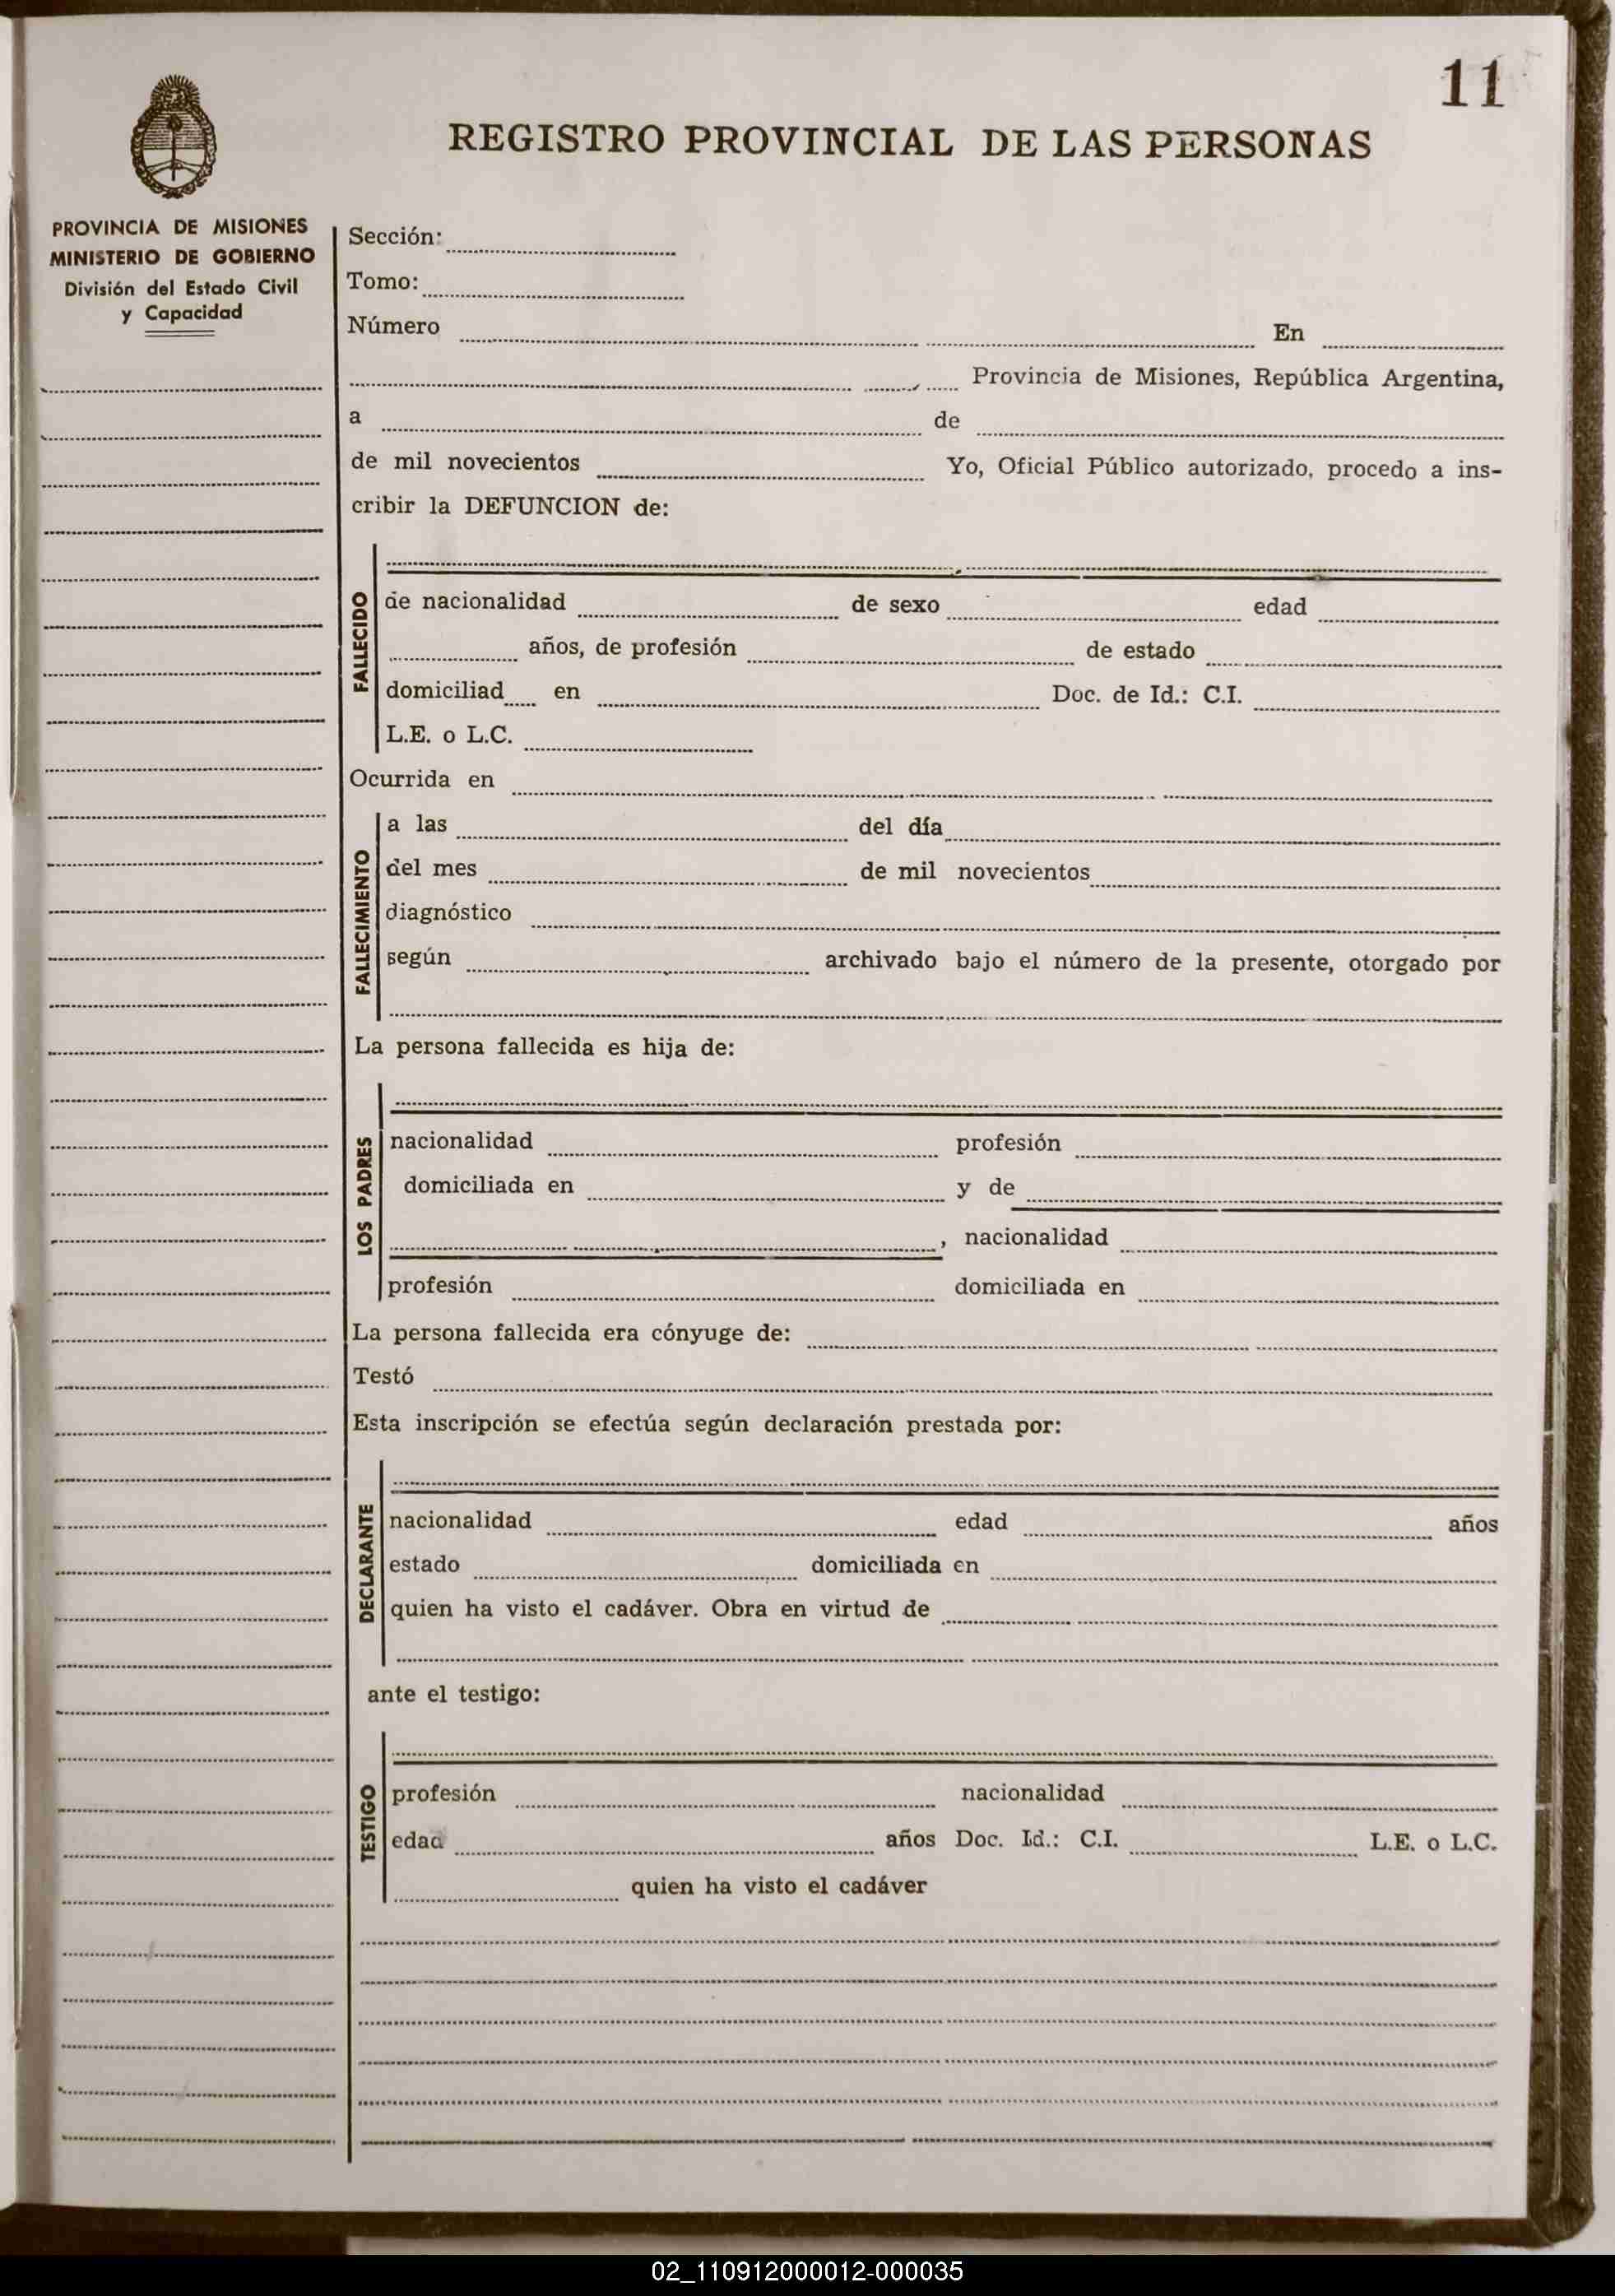 11
REGISTRO PROVINCIAL DE LAS PERSONAS
PROVINCIA DE MISIONES
MINISTERIO DE GOBIERNO
División del Estado Civil
y Capacidad
Sección:
Tomo:
Número En
Provincia de Misiones, República Argentina,
a de
de mil novecientos Yo, Oficial Público autorizado, procedo a ins-
cribir la DEFUNCION de:
FALLECIDO
de nacionalidad de sexo edad
años, de profesión de estado
domiciliad en Doc. de Id.: C.I.
L.E. o L.C.
Ocurrida en
FALLECIMIENTO
a las del día
del mes de mil novecientos
diagnóstico
según archivado bajo el número de la presente, otorgado por
La persona fallecida es hija de:
LOS PADRES
nacionalidad profesión
domiciliada en y de
, nacionalidad
profesión domiciliada en
La persona fallecida era cónyuge de:
Testó
Esta inscripción se efectúa según declaración prestada por:
DECLARANTE
nacionalidad edad años
estado domiciliada en
quien ha visto el cadáver. Obra en virtud de
ante el testigo:
TESTIGO
profesión nacionalidad
edad años Doc. Id.: C.I. L.E. o L.C.
quien ha visto el cadáver
02_110912000012-000035